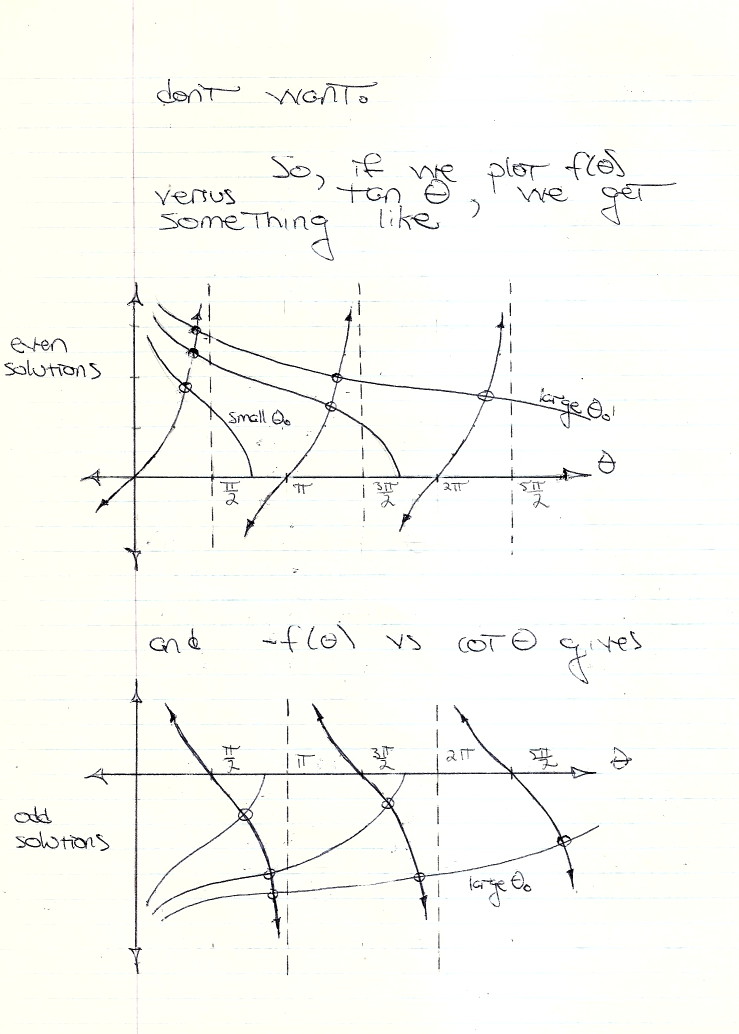 don't want.
So, if we plot f(θ)
versus tan θ, we get
something like
even
solutions
small θ₀
large θ₀
θ
π/2 π 3π/2 2π 5π/2
and -f(θ) vs cot θ gives
π/2 π 3π/2 2π 5π/2 θ
odd
solutions
large θ₀